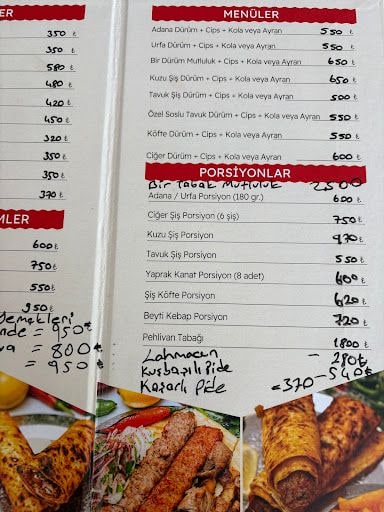 ER
350 ₺
350 ₺
580 ₺
480 ₺
420 ₺
450 ₺
320 ₺
350 ₺
350 ₺
370 ₺
MLER
600 ₺
750 ₺
550 ₺
950 ₺
yemekleri
nde = 950 ₺
va = 800 ₺
= 950 ₺
MENÜLER
Adana Dürüm + Cips + Kola veya Ayran 550 ₺
Urfa Dürüm + Cips + Kola veya Ayran 550 ₺
Bir Dürüm Mutluluk + Cips + Kola veya Ayran 650 ₺
Kuzu Şiş Dürüm + Cips + Kola veya Ayran 650 ₺
Tavuk Şiş Dürüm + Cips + Kola veya Ayran 500 ₺
Özel Soslu Tavuk Dürüm + Cips + Kola veya Ayran 550 ₺
Köfte Dürüm + Cips + Kola veya Ayran 550 ₺
Ciğer Dürüm + Cips + Kola veya Ayran 600 ₺
PORSİYONLAR
Bir Tabak Mutluluk 2500
Adana / Urfa Porsiyon (180 gr.) 600 ₺
Ciğer Şiş Porsiyon (6 şiş) 750 ₺
Kuzu Şiş Porsiyon 870 ₺
Tavuk Şiş Porsiyon 550 ₺
Yaprak Kanat Porsiyon (8 adet) 600 ₺
Şiş Köfte Porsiyon 620 ₺
Beyti Kebap Porsiyon 720 ₺
Pehlivan Tabağı 1800 ₺
Lahmacun - 280 ₺
Kuşbaşılı Pide - 540 ₺
Kaşarlı Pide = 370